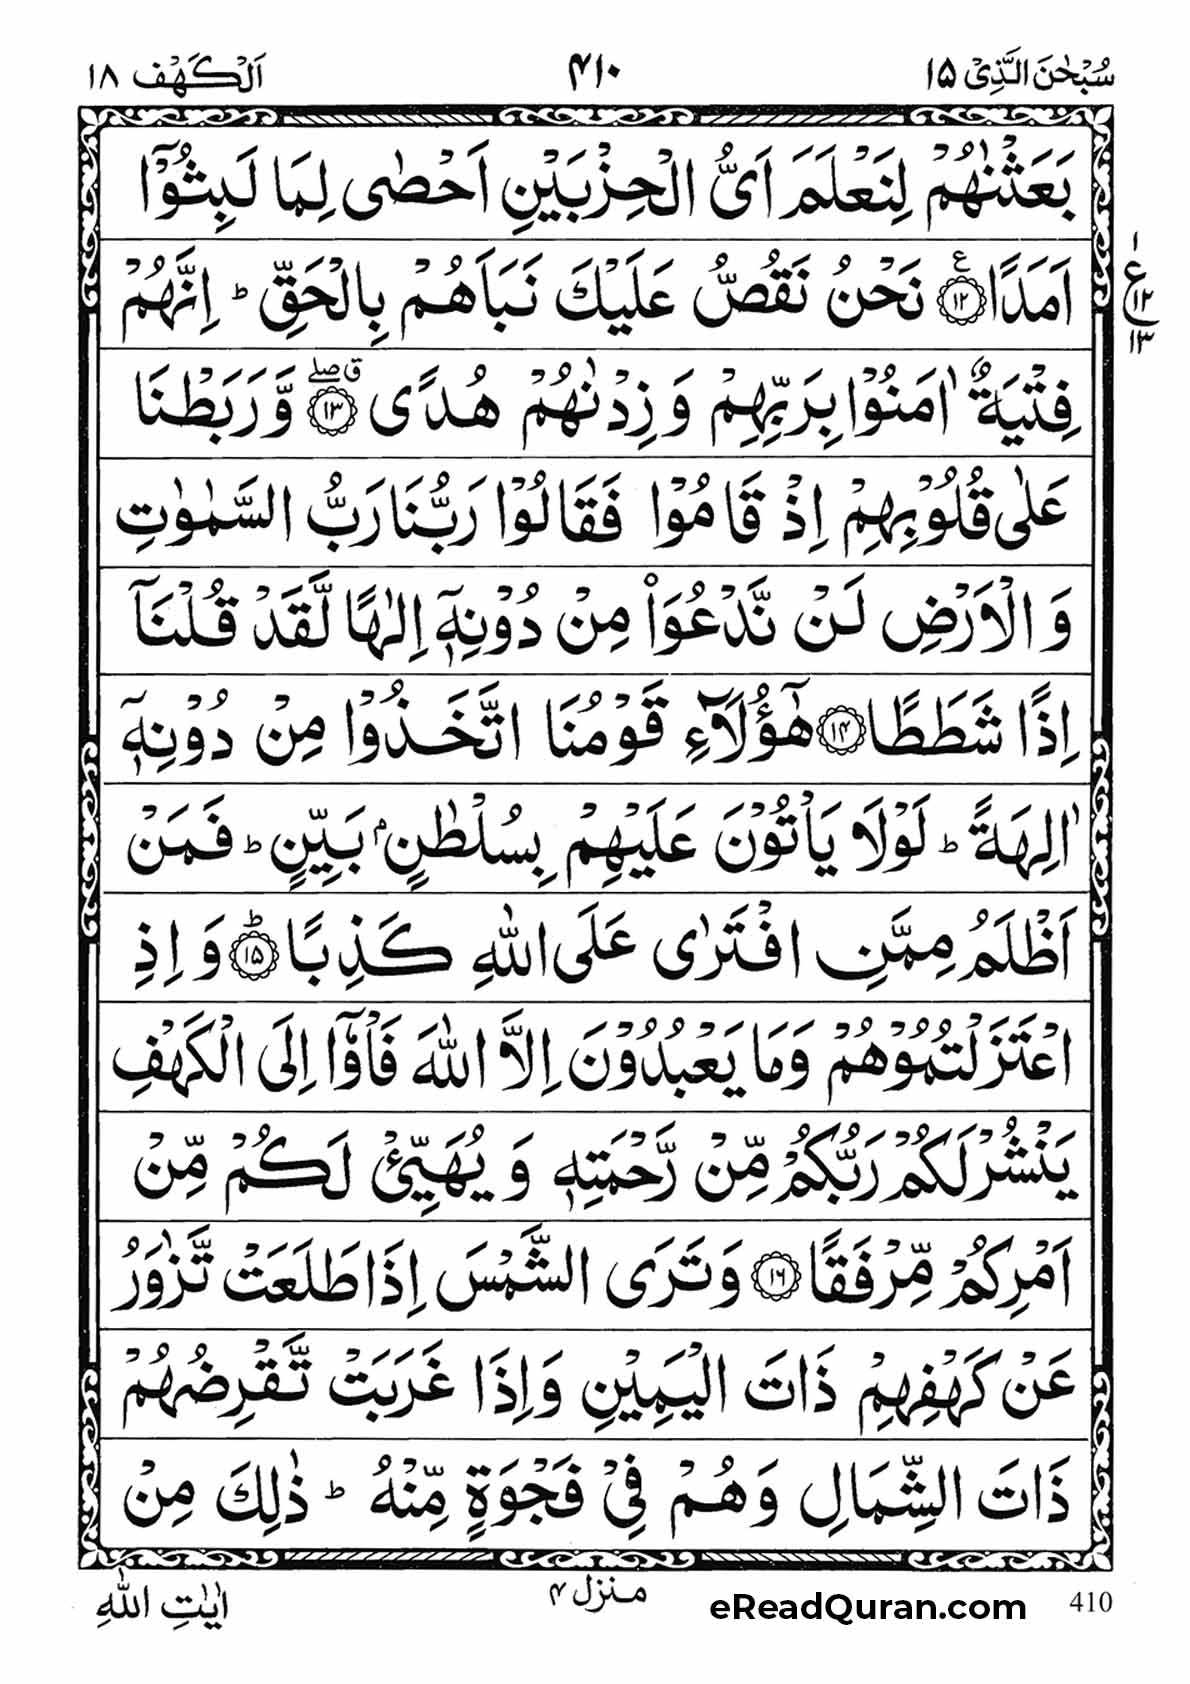 سُبْحٰنَ الَّذِیْۤ ۱۵ ۴۱۰ اَلْكَهْف ۱۸
بَعَثْنٰهُمْ لِنَعْلَمَ اَیُّ الْحِزْبَیْنِ اَحْصٰی لِمَا لَبِثُوْۤا
اَمَدًا ۝۱۲ ع نَحْنُ نَقُصُّ عَلَیْكَ نَبَاَهُمْ بِالْحَقِّ ؕ اِنَّهُمْ
۱ ع ۱۲ ۱۳
فِتْیَةٌ اٰمَنُوْا بِرَبِّهِمْ وَ زِدْنٰهُمْ هُدًی ۝۱۳ ق صلے وَّ رَبَطْنَا
عَلٰی قُلُوْبِهِمْ اِذْ قَامُوْا فَقَالُوْا رَبُّنَا رَبُّ السَّمٰوٰتِ
وَ الْاَرْضِ لَنْ نَّدْعُوَا۠ مِنْ دُوْنِهٖۤ اِلٰهًا لَّقَدْ قُلْنَاۤ
اِذًا شَطَطًا ۝۱۴ هٰۤؤُلَآءِ قَوْمُنَا اتَّخَذُوْا مِنْ دُوْنِهٖۤ
اٰلِهَةً ؕ لَوْلَا یَاْتُوْنَ عَلَیْهِمْ بِسُلْطٰنٍۭ بَیِّنٍ ؕ فَمَنْ
اَظْلَمُ مِمَّنِ افْتَرٰی عَلَی اللّٰهِ كَذِبًا ۝۱۵ؕ وَ اِذِ
اعْتَزَلْتُمُوْهُمْ وَمَا یَعْبُدُوْنَ اِلَّا اللّٰهَ فَاْوٗۤا اِلَی الْكَهْفِ
یَنْشُرْ لَكُمْ رَبُّكُمْ مِّنْ رَّحْمَتِهٖ وَ یُهَیِّئْ لَكُمْ مِّنْ
اَمْرِكُمْ مِّرْفَقًا ۝۱۶ وَ تَرَی الشَّمْسَ اِذَا طَلَعَتْ تَّزٰوَرُ
عَنْ كَهْفِهِمْ ذَاتَ الْیَمِیْنِ وَ اِذَا غَرَبَتْ تَّقْرِضُهُمْ
ذَاتَ الشِّمَالِ وَ هُمْ فِیْ فَجْوَةٍ مِّنْهُ ؕ ذٰلِكَ مِنْ
اٰیٰتِ اللّٰهِ منزل ۴ eReadQuran.com 410